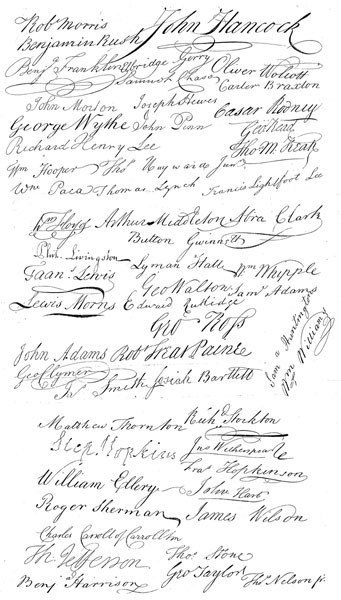 Robt Morris John Hancock
Benjamin Rush
Benj. Franklin Elbridge Gerry Oliver Wolcott
Samuel Chase Carter Braxton
John Morton Joseph Hewes Caesar Rodney
George Wythe John Penn Geo Read
Richard Henry Lee Tho M:Kean
Wm Hooper Thos Hayward Junr.
Wm Paca Thomas Lynch Francis Lightfoot Lee
Wm Floyd Arthur Middleton Abra Clark
Button Gwinnett
Phil. Livingston Lyman Hall Wm Whipple
Fran.s Lewis Geo Walton Saml Adams
Lewis Morris Edward Rutledge
Geo Ross
Sam el Huntington
Wm Williams
John Adams Robt Treat Paine
Geo Clymer Jas Smith Josiah Bartlett
Matthew Thornton Richd Stockton
Step. Hopkins Jno Witherspoon
Fras Hopkinson
William Ellery John Hart
Roger Sherman James Wilson
Charles Carroll of Carrollton
Th Jefferson Thos Stone
Benj a Harrison Geo Taylor Thos Nelson jr.